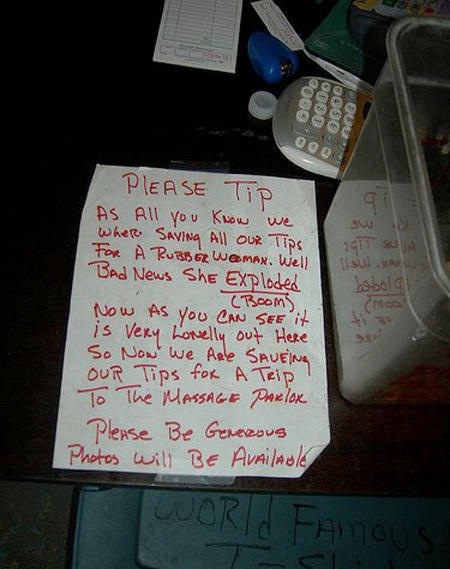 PLEASE TIP
AS All you KNOW WE
WHER SAVING All OUR TIPS
FOR A RUBBER WOMAN. WEll
BAD NEWS SHE EXPloDED
(BOOM)
NOW AS YOU CAN SEE it
is VERY LONElly OUT HERE
SO NOW WE ARE SAVEING
OUR TIPS FOR A TRIP
TO THE MASSAGE PARlOR
PlEASE BE GENEROUS
PHOTOS Will BE AVAilABlE
WORld FAMOUS